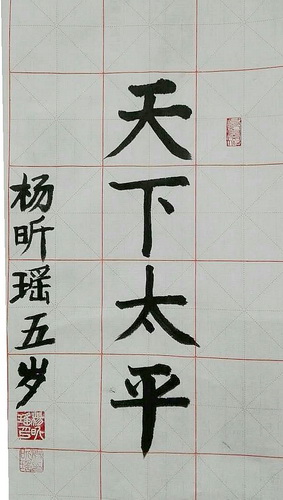 天下太平
杨昕瑶五岁